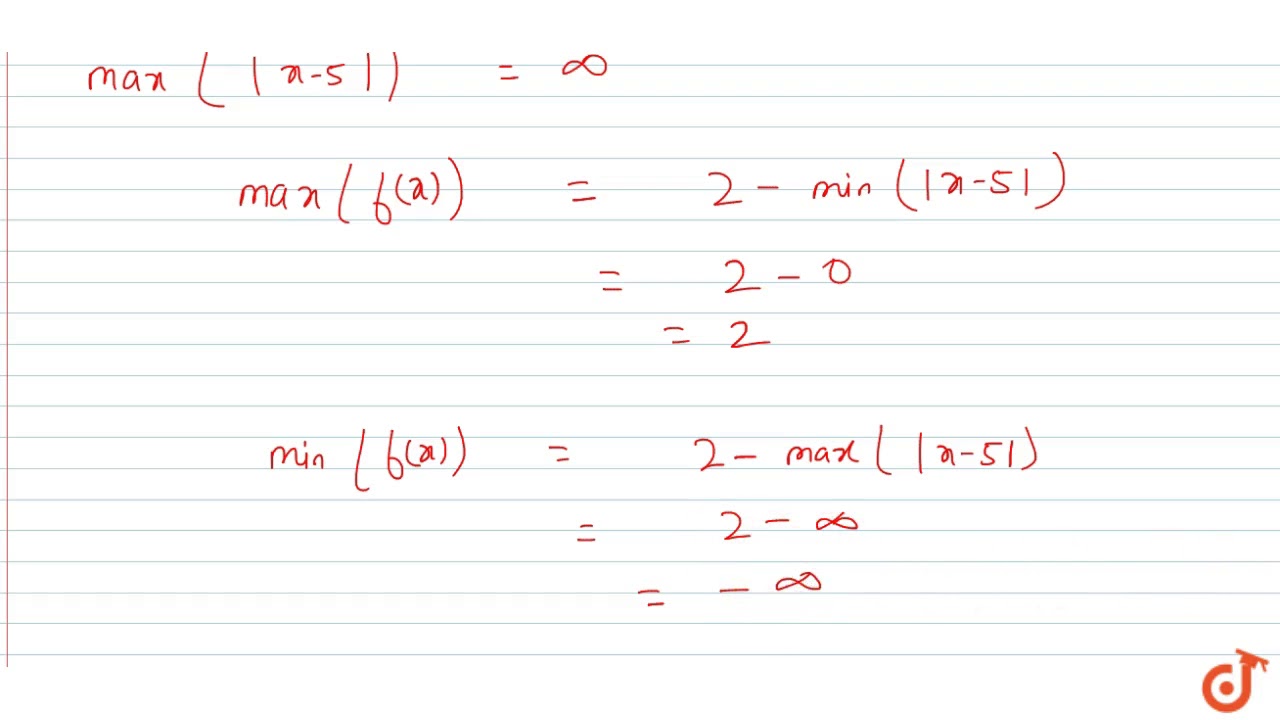 max ( |x-5| ) = ∞
max ( f(x) ) = 2 - min ( |x-5| )
= 2 - 0
= 2
min ( f(x) ) = 2 - max ( |x-5| )
= 2 - ∞
= - ∞